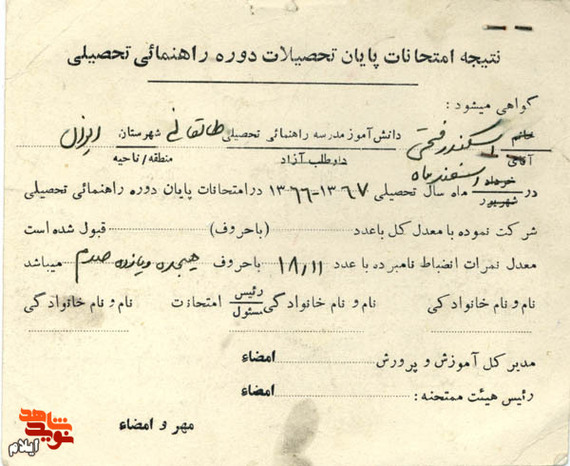 نتیجه امتحانات پایان تحصیلات دوره راهنمائی تحصیلی
گواهی میشود :
خانم
آقای
اسکندر فتحی
دانش آموز مدرسه راهنمائی تحصیلی
داوطلب آزاد
طالقانی
شهرستان
منطقه/ناحیه
در
خرداد
شهریور
اسفند ماه
ماه سال تحصیلی ۱۳۶۷-۱۳۶۶ در امتحانات پایان دوره راهنمائی تحصیلی
شرکت نموده با معدل کل با عدد (با حروف) قبول شده است
معدل نمرات انضباط نامبرده با عدد ۱۸٫۱۱ با حروف هیجده و یازده صدم میباشد
نام و نام خانوادگی نام و نام خانوادگی رئیس مسئول امتحانات نام و نام خانوادگی
مدیر کل آموزش و پرورش امضاء
رئیس هیئت ممتحنه : امضاء
مهر و امضاء
نوید شاهد
ایلام